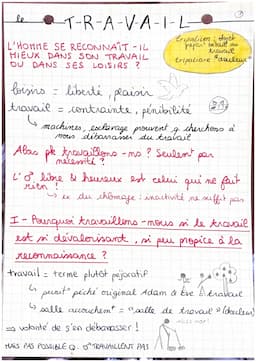 le T-R-A-V-A-I-L
L'HOMME SE RECONNAÎT-IL
MIEUX DANS SON TRAVAIL
OU DANS SES LOISIRS ?
loisirs = liberté, plaisir
travail = contrainte, pénibilité
↳ machines, esclavage prouvent q cherchons à
nous débarasser du travail
Alors pk travaillons-nous ? Seulement par
nécessité ?
L'o libre & heureux est celui qui ne fait
rien !
↳ ex du chômage : inactivité ne suffit pas
I - Pourquoi travaillons-nous si le travail
est si dévalorisant, si peu propice à la
reconnaissance ?
travail = terme plutôt péjoratif
↳ péché originel Adam & Eve → travail
↳ salle accouchem^t = "salle de travail" (douleur)
⇒ volonté de s'en débarasser !
MAIS PAS POSSIBLE TRAVAILLENT PAS